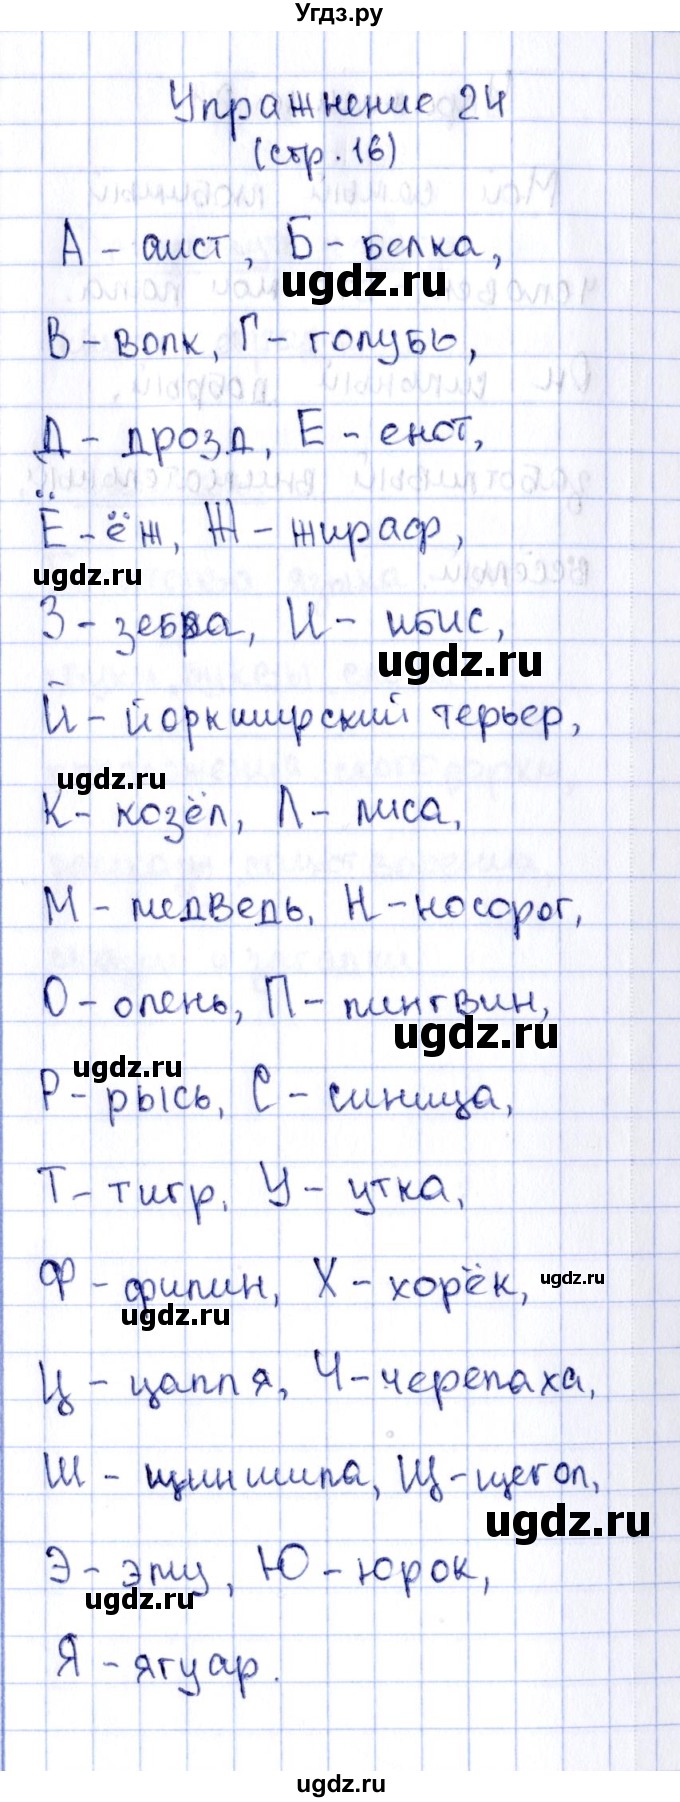 Угдз.ру
Упражнение 24
(стр. 16)
А - аист, Б - белка,
ugdz.ru
В - волк, Г - голубь,
Д - дрозд, Е - енот,
Ё - ёж, Ж - жираф,
ugdz.ru
З - зебра, И - ибис,
ugdz.ru
Й - йоркширский терьер,
ugdz.ru
К - козёл, Л - лиса,
М - медведь, Н - носорог,
О - олень, П - пингвин,
ugdz.ru
ugdz.ru
Р - рысь, С - синица,
Т - тигр, У - утка,
Ф - филин, Х - хорёк,
ugdz.ru
ugdz.ru
Ц - цапля, Ч - черепаха,
Ш - шиншилла, Щ - щегол,
ugdz.ru
Э - эму, Ю - юрок,
ugdz.ru
Я - ягуар.
ugdz.ru